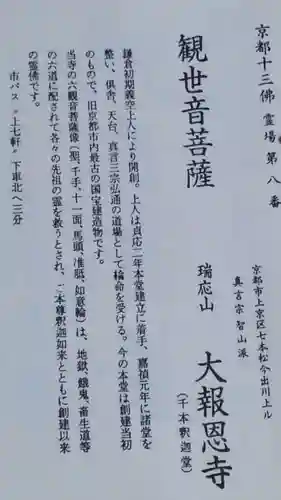 京都十三佛霊場第八番
観世音菩薩
京都市上京区七本松今出川上ル
真言宗智山派
瑞応山 大報恩寺
(千本釈迦堂)
鎌倉初期義空上人により開創。上人は貞応二年本堂建立に着手、嘉禎元年に諸堂を
整い、倶舎、天台、真言三宗弘通の道場として綸命を受ける。今の本堂は創建当初
のもので、旧京都市内最古の国宝建造物です。
当寺の六観音菩薩像(聖、千手、十一面、馬頭、准胝、如意輪)は、地獄、餓鬼、畜生道等
の六道に配されて各々の先祖の霊を救うとされ、ご本尊釈迦如来とともに創建以来
の霊佛です。
市バス〃上七軒〃下車北へ三分